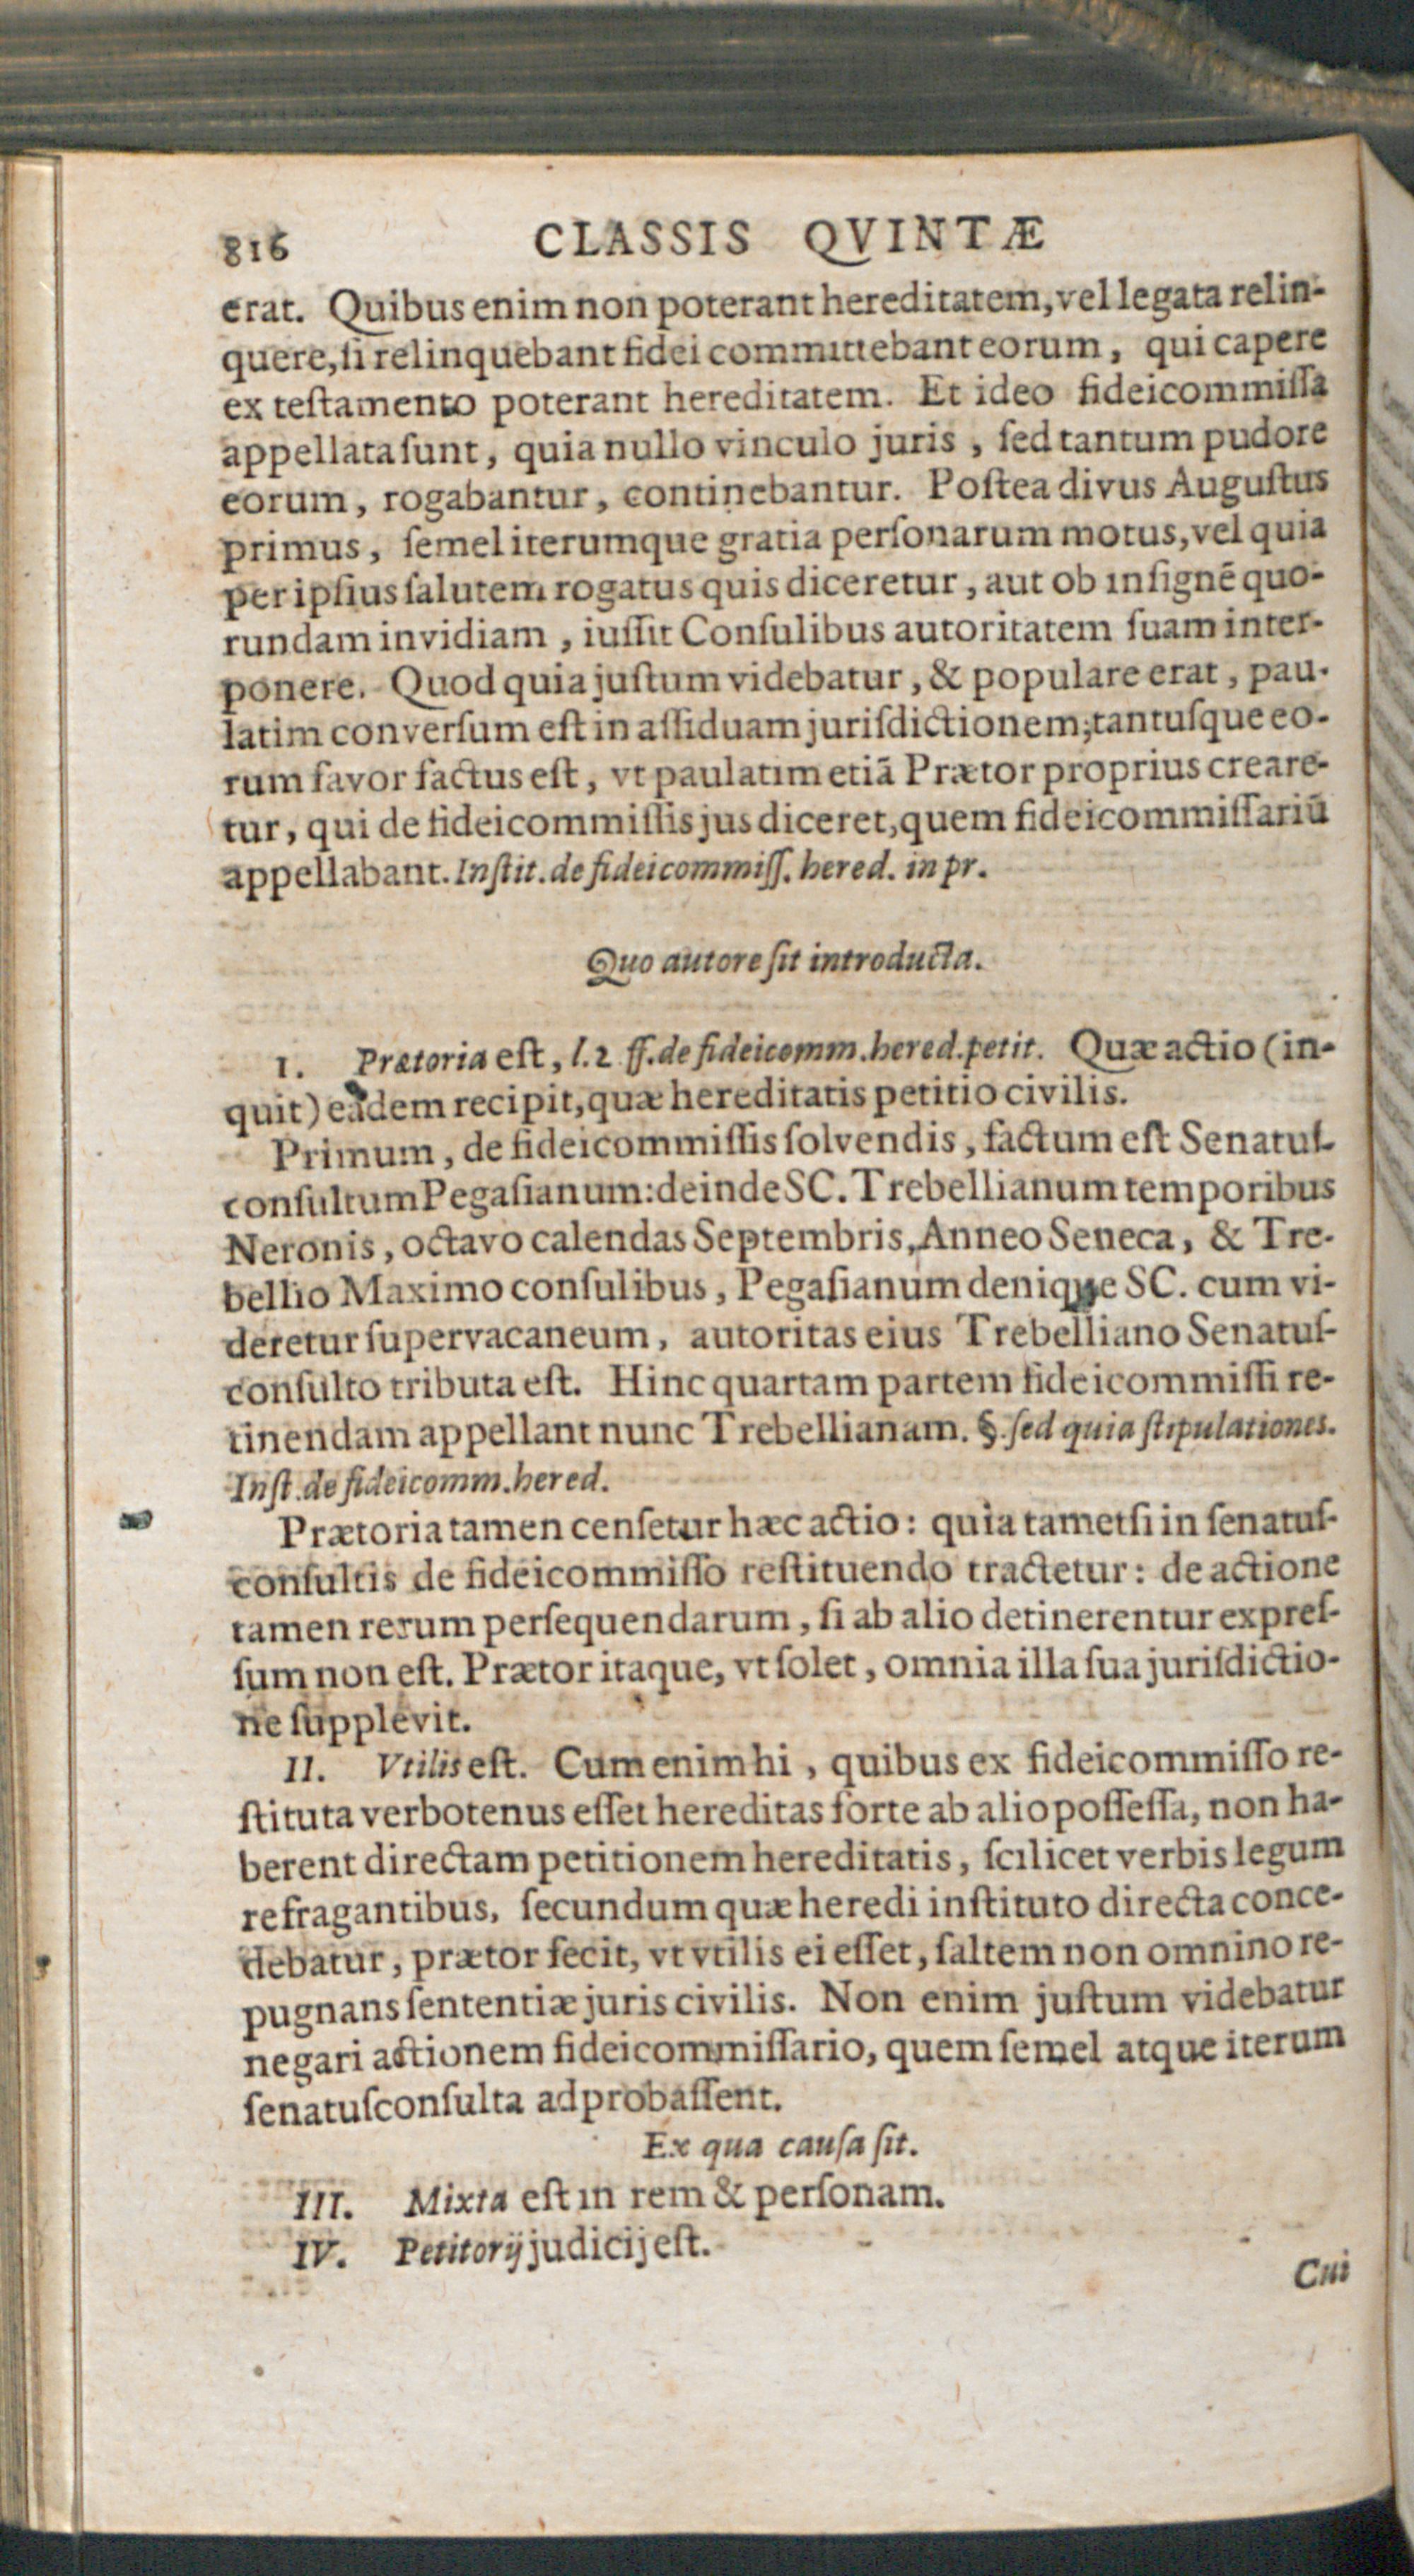 816 CLASSIS QVINTÆ
erat. Quibus enim non poterant hereditatem, vel legata relin-
quere, si relinquebant fidei committebant eorum, qui capere
ex teſtamento poterant hereditatem. Et ideo fideicommiſſa
appellata ſunt, quia nullo vinculo juris, ſed tantum pudore
eorum, rogabantur, continebantur. Poſtea divus Auguſtus
primus, ſemel iterumque gratia perſonarum motus, vel quia
per ipſius ſalutem rogatus quis diceretur, aut ob inſignē quo-
rundam invidiam, iuſſit Conſulibus autoritatem ſuam inter-
ponere. Quod quia juſtum videbatur, & populare erat, pau-
latim converſum eſt in aſſiduam juriſdictionem; tantuſque eo-
rum favor factus eſt, vt paulatim etiā Prætor proprius creare-
tur, qui de fideicommiſſis jus diceret, quem fideicommiſſariū
appellabant. Inſtit. de fideicommiſſ. hered. in pr.
Quo autore ſit introducta.
I. Prætoria eſt, l. 2 ff. de fideicomm. hered. petit. Quæ actio (in-
quit) eadem recipit, quæ hereditatis petitio civilis.
Primum, de fideicommiſſis ſolvendis, factum eſt Senatuſ-
conſultum Pegaſianum: deinde SC. Trebellianum temporibus
Neronis, octavo calendas Septembris, Anneo Seneca, & Tre-
bellio Maximo conſulibus, Pegaſianum denique SC. cum vi-
deretur ſupervacaneum, autoritas eius Trebelliano Senatuſ-
conſulto tributa eſt. Hinc quartam partem fideicommiſſi re-
tinendam appellant nunc Trebellianam. §. ſed quia ſtipulationes.
Inſt. de fideicomm. hered.
Prætoria tamen cenſetur hæc actio: quia tametſi in ſenatuſ-
conſultis de fideicommiſſo reſtituendo tractetur: de actione
tamen rerum perſequendarum, ſi ab alio detinerentur expreſ-
ſum non eſt. Prætor itaque, vt ſolet, omnia illa ſua juriſdictio-
ne ſupplevit.
II. Vtilis eſt. Cum enim hi, quibus ex fideicommiſſo re-
ſtituta verbotenus eſſet hereditas forte ab alio poſſeſſa, non ha-
berent directam petitionem hereditatis, ſcilicet verbis legum
refragantibus, ſecundum quæ heredi inſtituto directa conce-
debatur, prætor fecit, vt vtilis ei eſſet, ſaltem non omnino re-
pugnans ſententiæ juris civilis. Non enim juſtum videbatur
negari actionem fideicommiſſario, quem ſemel atque iterum
ſenatuſconſulta adprobaſſent.
Ex qua cauſa ſit.
III. Mixta eſt in rem & perſonam.
IV. Petitorij judicij eſt.
Cui